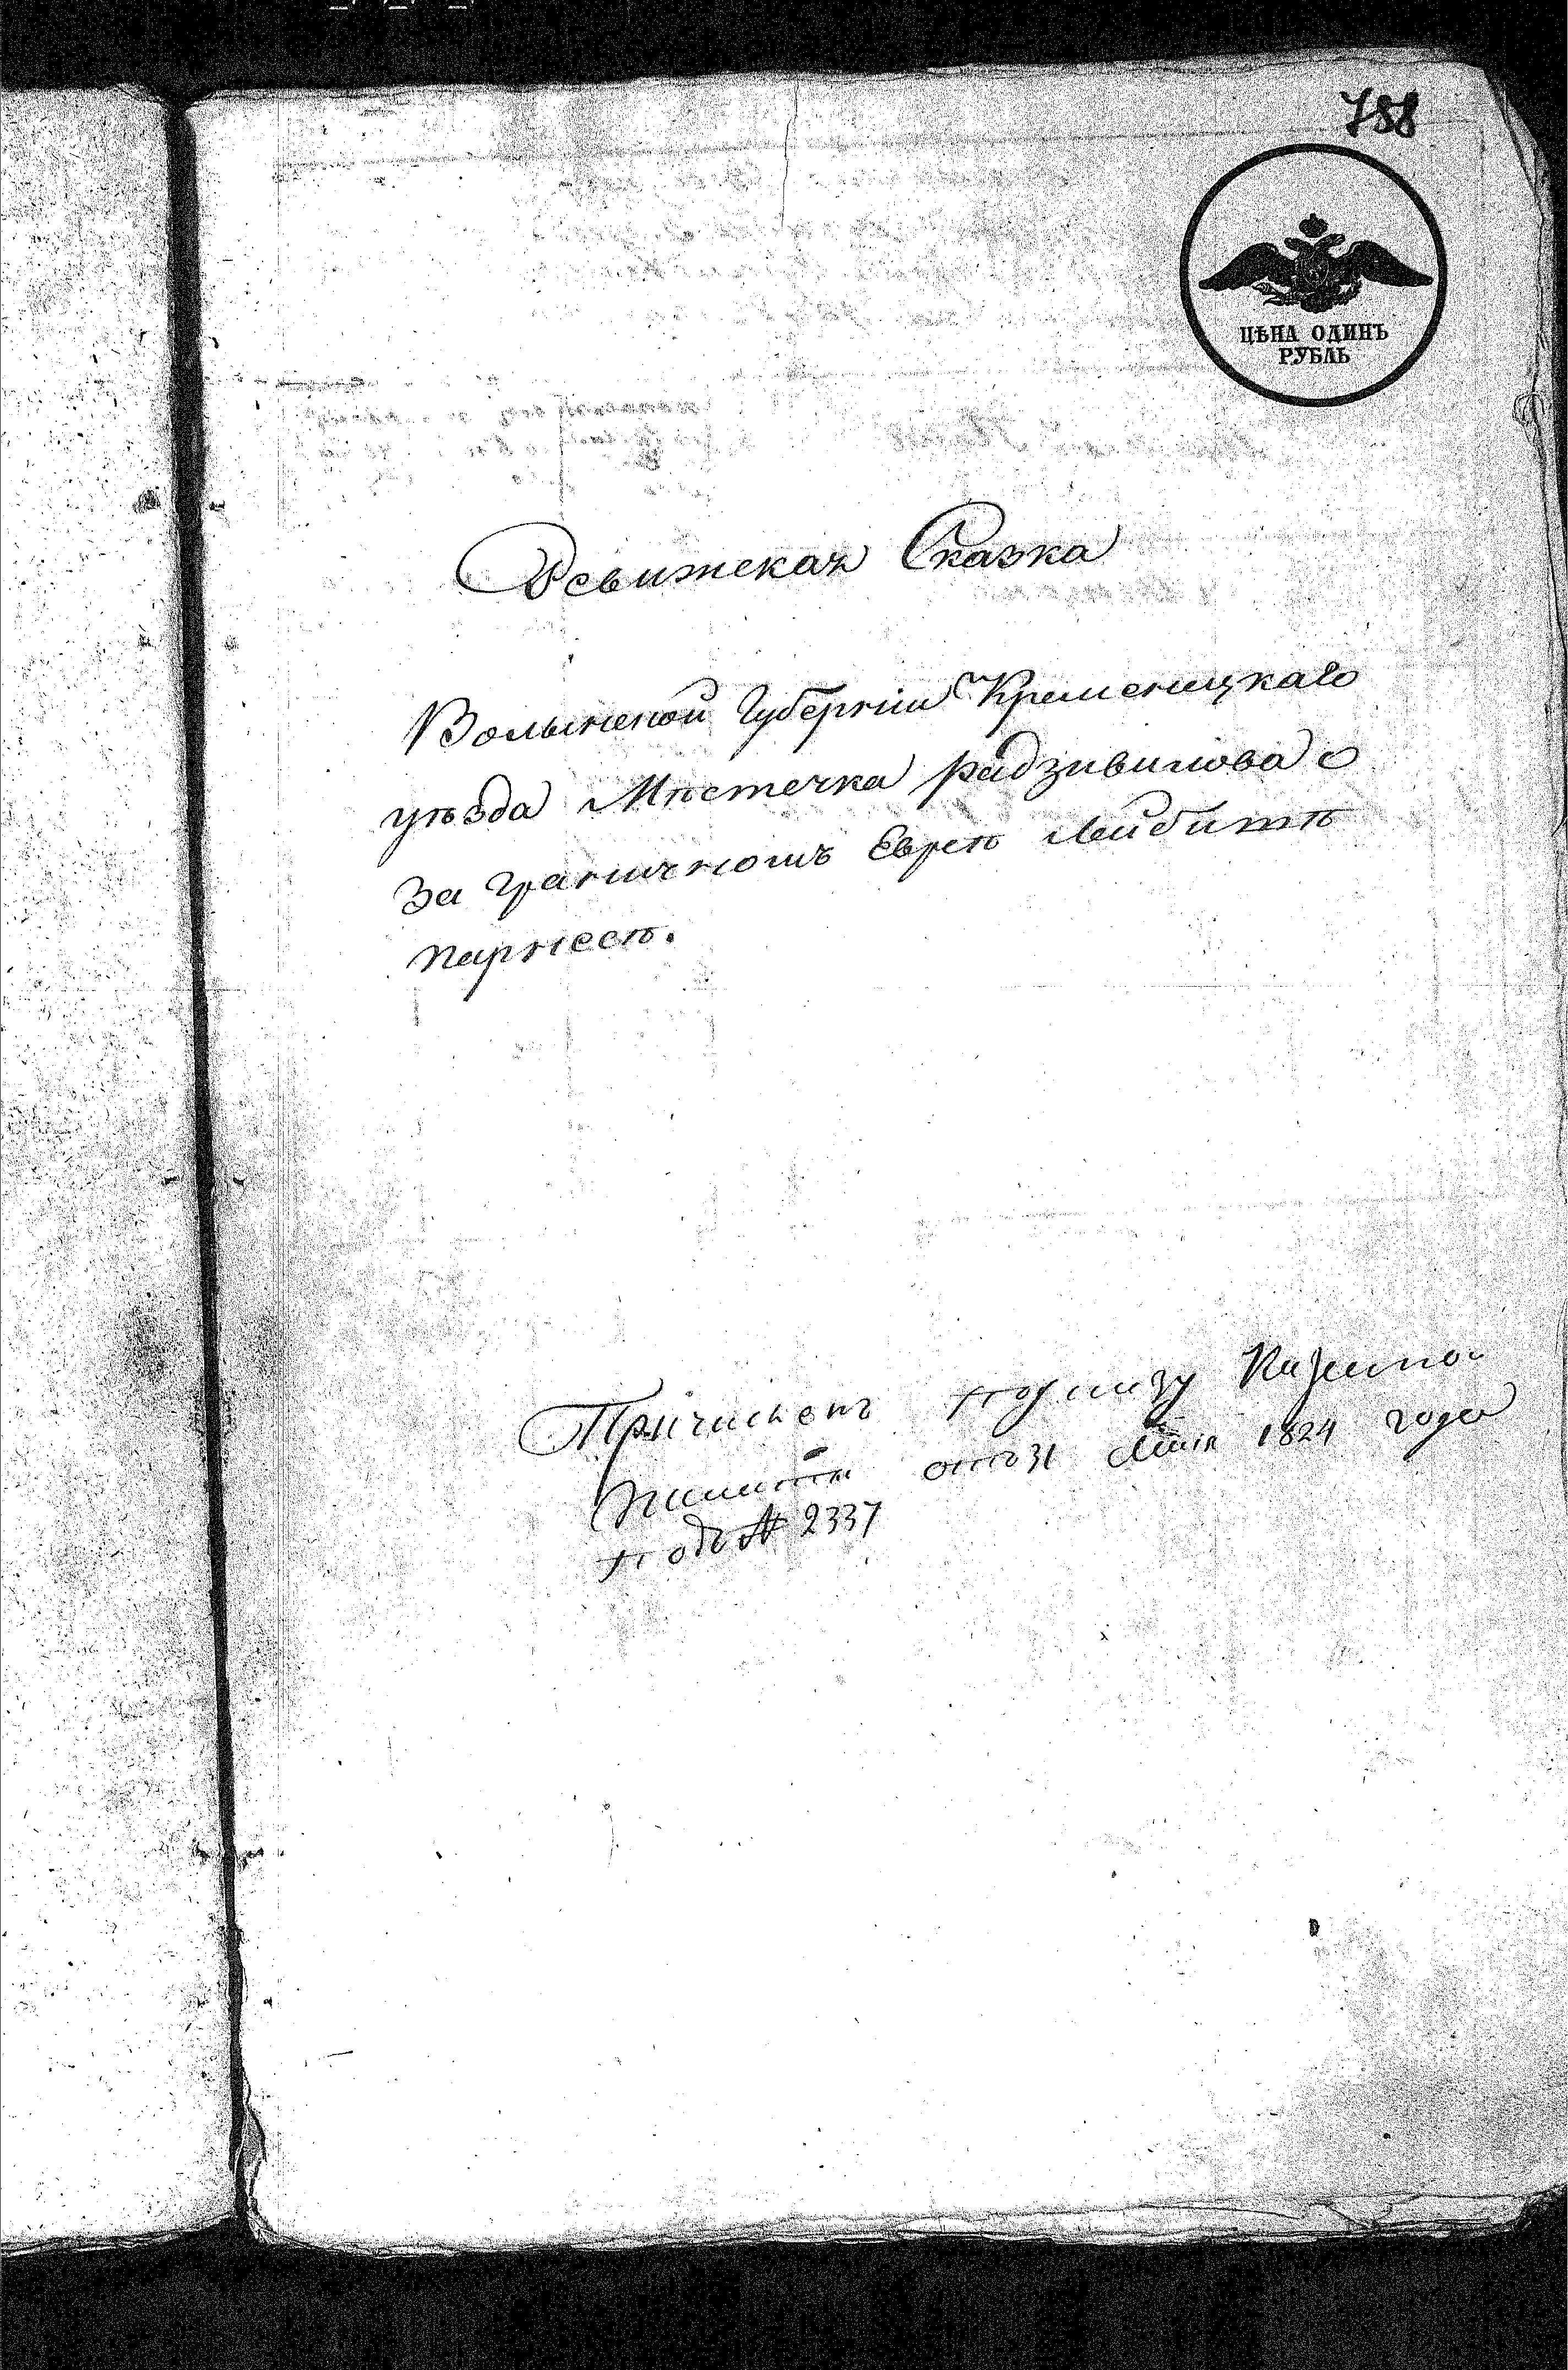 788
ЦѢНА ОДИНЪ
РУБЛЬ
Ревижская Сказка
Волынской Губернiи Кременецкаго
уѣзда Мѣстечка радзивилова о
За граничномъ Еврѣѣ Лейбишѣ
парнесѣ.
Причисленъ по указу Казенной
Палаты отъ 31 Маiя 1824 года
подъ № 2337